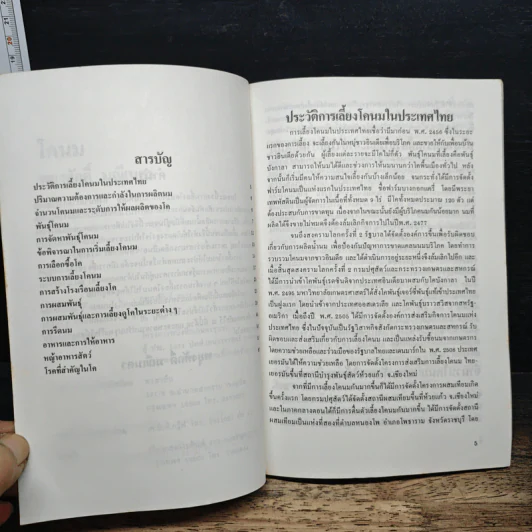 สารบัญ
ประวัติการเลี้ยงโคนมในประเทศไทย
ปริมาณความต้องการและกำลังในการผลิตนม
จำนวนโคนมและระดับการให้ผลผลิตของโค
พันธุ์โคนม
การจัดหาพันธุ์โคนม
ข้อพิจารณาในการเริ่มเลี้ยงโคนม
การเลือกซื้อโค
ระบบการเลี้ยงโคนม
การสร้างโรงเรือนเลี้ยงโค
การผสมพันธุ์
การผสมพันธุ์และการเลี้ยงดูโคในระยะต่าง ๆ
การรีดนม
อาหารและการให้อาหาร
หญ้าอาหารสัตว์
โรคที่สำคัญในโค
ประวัติการเลี้ยงโคนมในประเทศไทย
การเลี้ยงโคนมในประเทศไทยเชื่อว่ามีมาก่อน พ.ศ. 2450 ซึ่งในระยะ
แรกของการเลี้ยง จะเลี้ยงกันในหมู่ชาวอินเดียเพื่อบริโภค และขายให้กับเพื่อนบ้าน
ชาวอินเดียด้วยกัน ผู้เลี้ยงแต่ละรายจะมีโคไม่กี่ตัว พันธุ์โคนมที่เลี้ยงคือพันธุ์
บังกาลา สามารถให้นมได้ดีและช่วงการให้นมนานกว่าโคพื้นเมืองทั่ว ๆ ไป หลัง
จากนั้นก็เริ่มมีคนไทยให้ความสนใจเลี้ยงกันบ้างเล็กน้อย จนกระทั่งได้มีการจัดตั้ง
ฟาร์มโคนมเป็นแห่งแรกในประเทศไทย ชื่อฟาร์มบางกอกแดรี่ โดยมีพระยา
เทพหัสดินเป็นผู้จัดการในเนื้อที่ทั้งหมด 9 ไร่ มีโคทั้งหมดประมาณ 130 ตัว แต่
ต้องประสบกับการขาดทุน เนื่องจากในขณะนั้นยังมีผู้บริโภคนมกันน้อยมาก นมที่
ผลิตได้จึงขายไม่หมดจึงต้องล้มเลิกกิจการไปในปี พ.ศ. 2457
จนถึงสงครามโลกครั้งที่ 2 รัฐบาลได้จัดตั้งองค์การซึ่งขึ้นเพื่อรับผิดชอบ
เกี่ยวกับการผลิตน้ำนม เพื่อป้องกันปัญหาการขาดแคลนนมบริโภค โดยทำการ
รวบรวมโคนมจากชาวอินเดีย และได้ดำเนินการอยู่ระยะหนึ่งจึงล้มเลิกไปอีก และ
เมื่อสิ้นสุดสงครามโลกครั้งที่ 2 กรมปศุสัตว์และกระทรวงเกษตรและสหกรณ์
ได้มีการนำเข้าโคพันธุ์เรดซินดิจากประเทศอินเดียมาเลี้ยงที่ประเทศไทย
ปี พ.ศ. 2495 มหาวิทยาลัยเกษตรศาสตร์ได้สั่งโคพันธุ์เจอร์ซี่พันธุ์แท้เข้าประเทศไทย
เป็นฝูงแรก โดยนำเข้าจากประเทศออสเตรเลีย และโคพันธุ์บราวสวิสจากสหรัฐ-
อเมริกา เมื่อถึงปี พ.ศ. 2505 ได้มีการจัดตั้งองค์การส่งเสริมกิจการโคนมแห่ง
ประเทศไทย
ได้มีความช่วยเหลือ โดยการจัดตั้งโครงการส่งเสริมการเลี้ยงโคนม ไทย-
เยอรมันขึ้นที่สถานีบำรุงพันธุ์สัตว์ห้วยแก้ว จ.เชียงใหม่
จากที่มีการเลี้ยงโคนมกันมากขึ้นก็ได้มีการจัดตั้งโครงการผสมเทียมเกิด
ขึ้นครั้งแรก โดยกรมปศุสัตว์ได้จัดตั้งสถานีผสมเทียมขึ้นที่ห้วยแก้ว จ.เชียงใหม่
และในภาคกลางตอนใต้ก็มีการตื่นตัวเลี้ยงโคนมกันมากขึ้น ได้มีการจัดตั้งสถานี
ผสมเทียมเป็นแห่งที่สองที่ตำบลหนองโพ อำเภอโพธาราม จังหวัดราชบุรี โดย
5